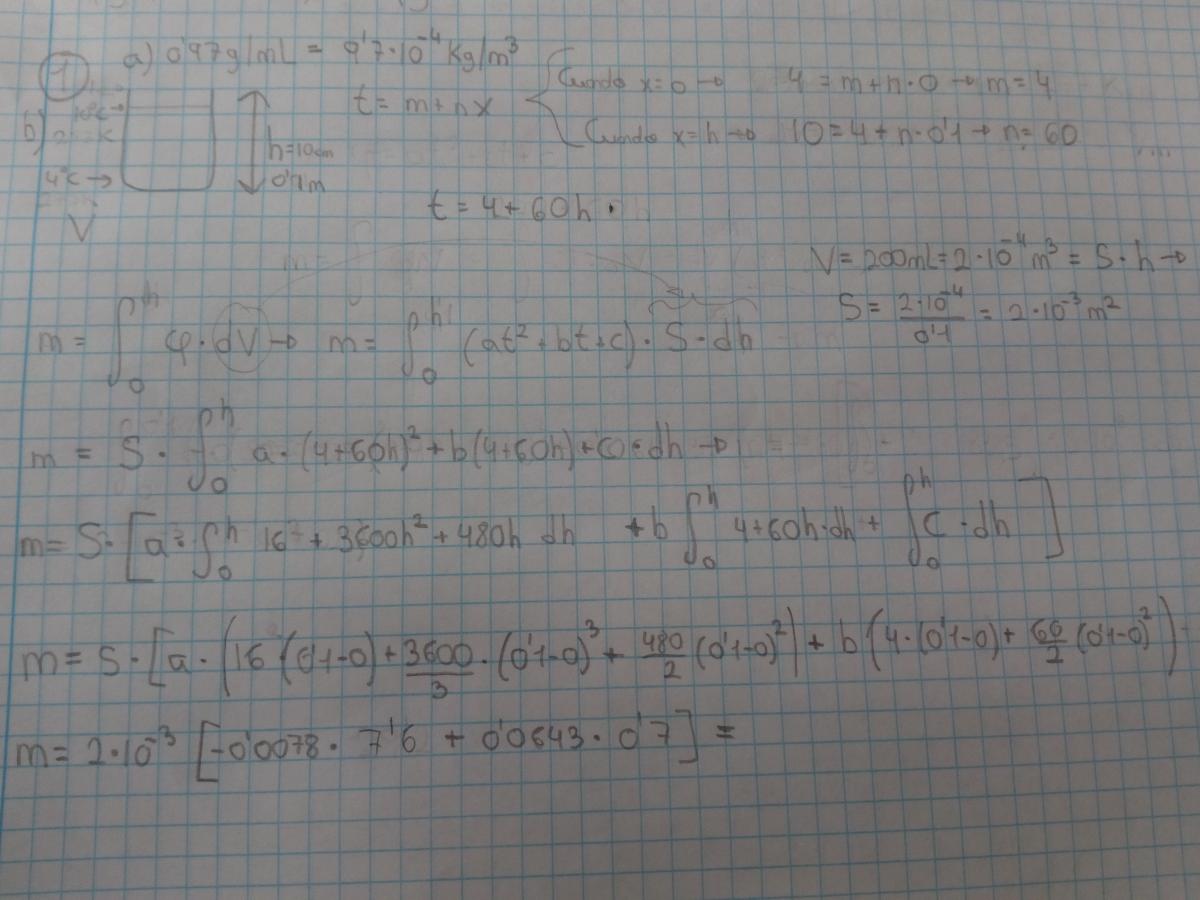 ① a) 0'97g/mL = 9'7·10⁻⁴ Kg/m³
b) 10ºC →
4ºC →
h=10cm
0'1m
V
t = m+nx
Cuando x=0 → 4 = m+n·0 → m=4
Cuando x=h → 10=4+n·0'1 → n=60
t = 4+60h
V=200mL=2·10⁻⁴m³ = S·h →
S = 2·10⁻⁴/0'1 = 2·10⁻³m²
m = ∫₀ʰ φ·dV → m = ∫₀ʰ (at²+bt+c)·S·dh
m = S·∫₀ʰ a·(4+60h)²+b(4+60h)+c·dh →
m = S·[a·∫₀ʰ 16+3600h²+480h dh +b ∫₀ʰ 4+60h·dh + ∫₀ʰ c·dh]
m = S·[a·(16(0'1-0)+3600/3·(0'1-0)³+480/2(0'1-0)²)+b(4·(0'1-0)+60/2(0'1-0)²)
m = 2·10⁻³ [-0'0078·7'6 + 0'0643·0'7] =